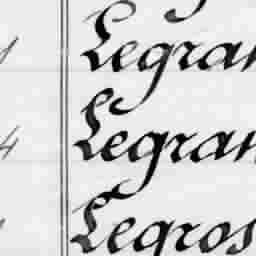 Legran
4 Legran
Legros